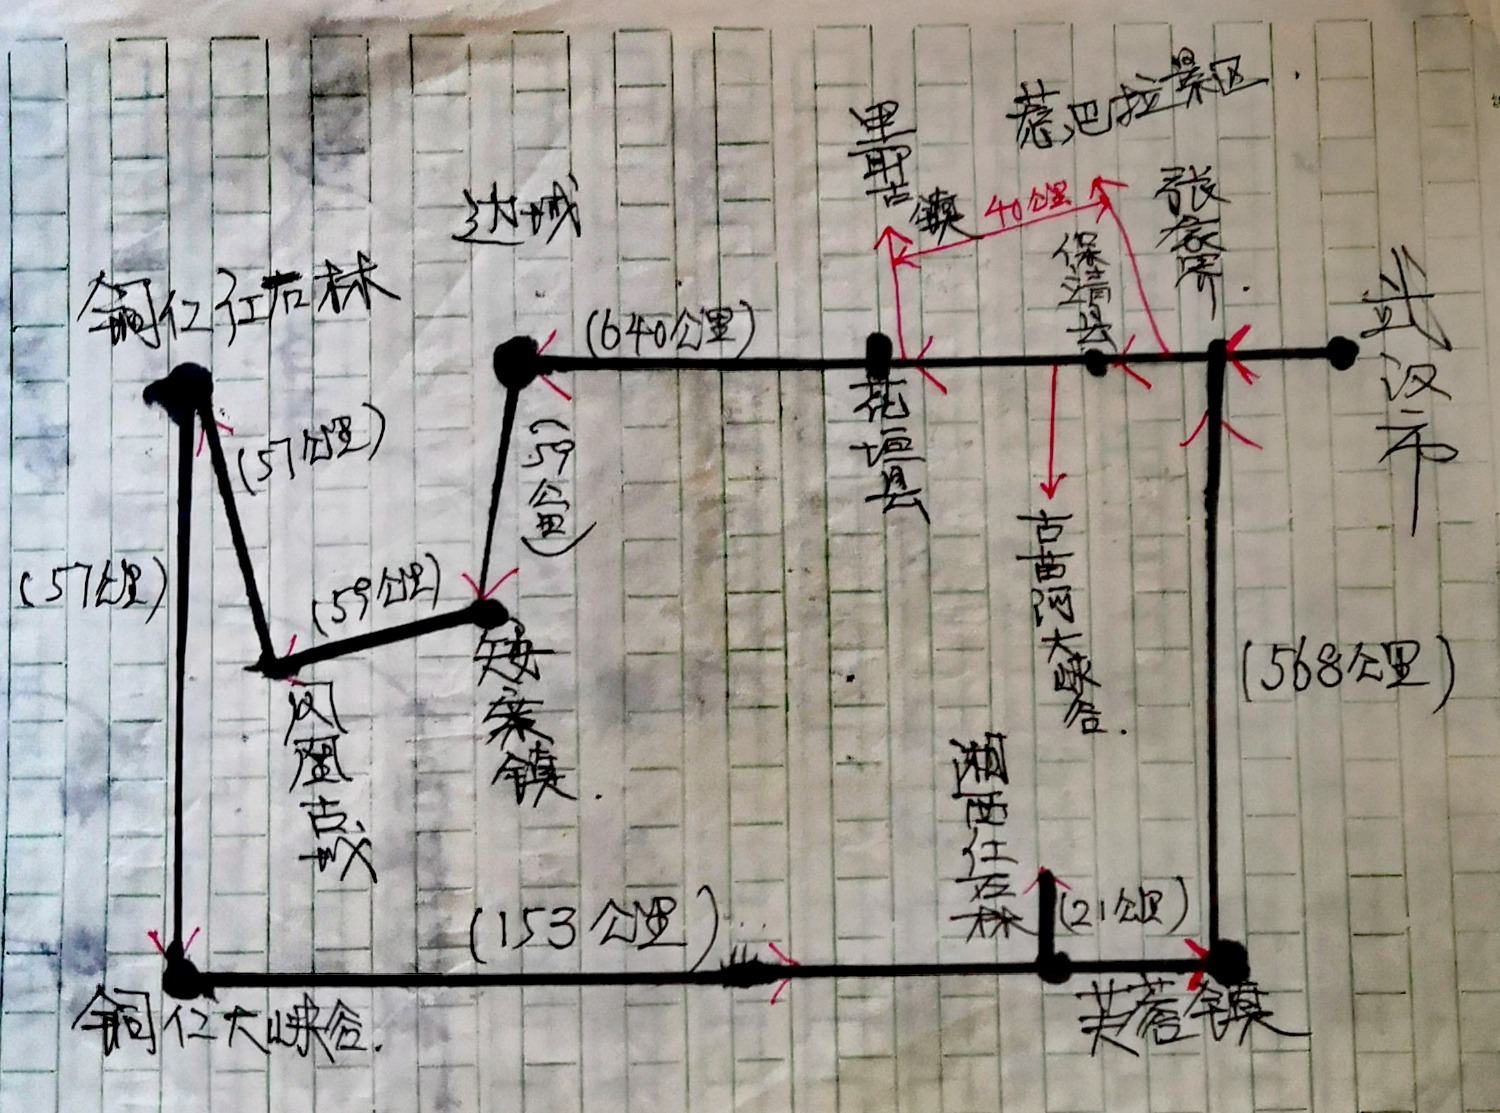 惹巴拉景区.
里耶古镇
40公里
张家界.
保靖县
边城
铜仁红石林
(640公里)
武汉市
花垣县
(57公里)
(59公里)
古苗河大峡谷.
(59公里)
(57公里)
矮寨镇.
凤凰古城
(568公里)
湘西红石林
(153公里)
(21公里)
铜仁大峡谷.
芙蓉镇